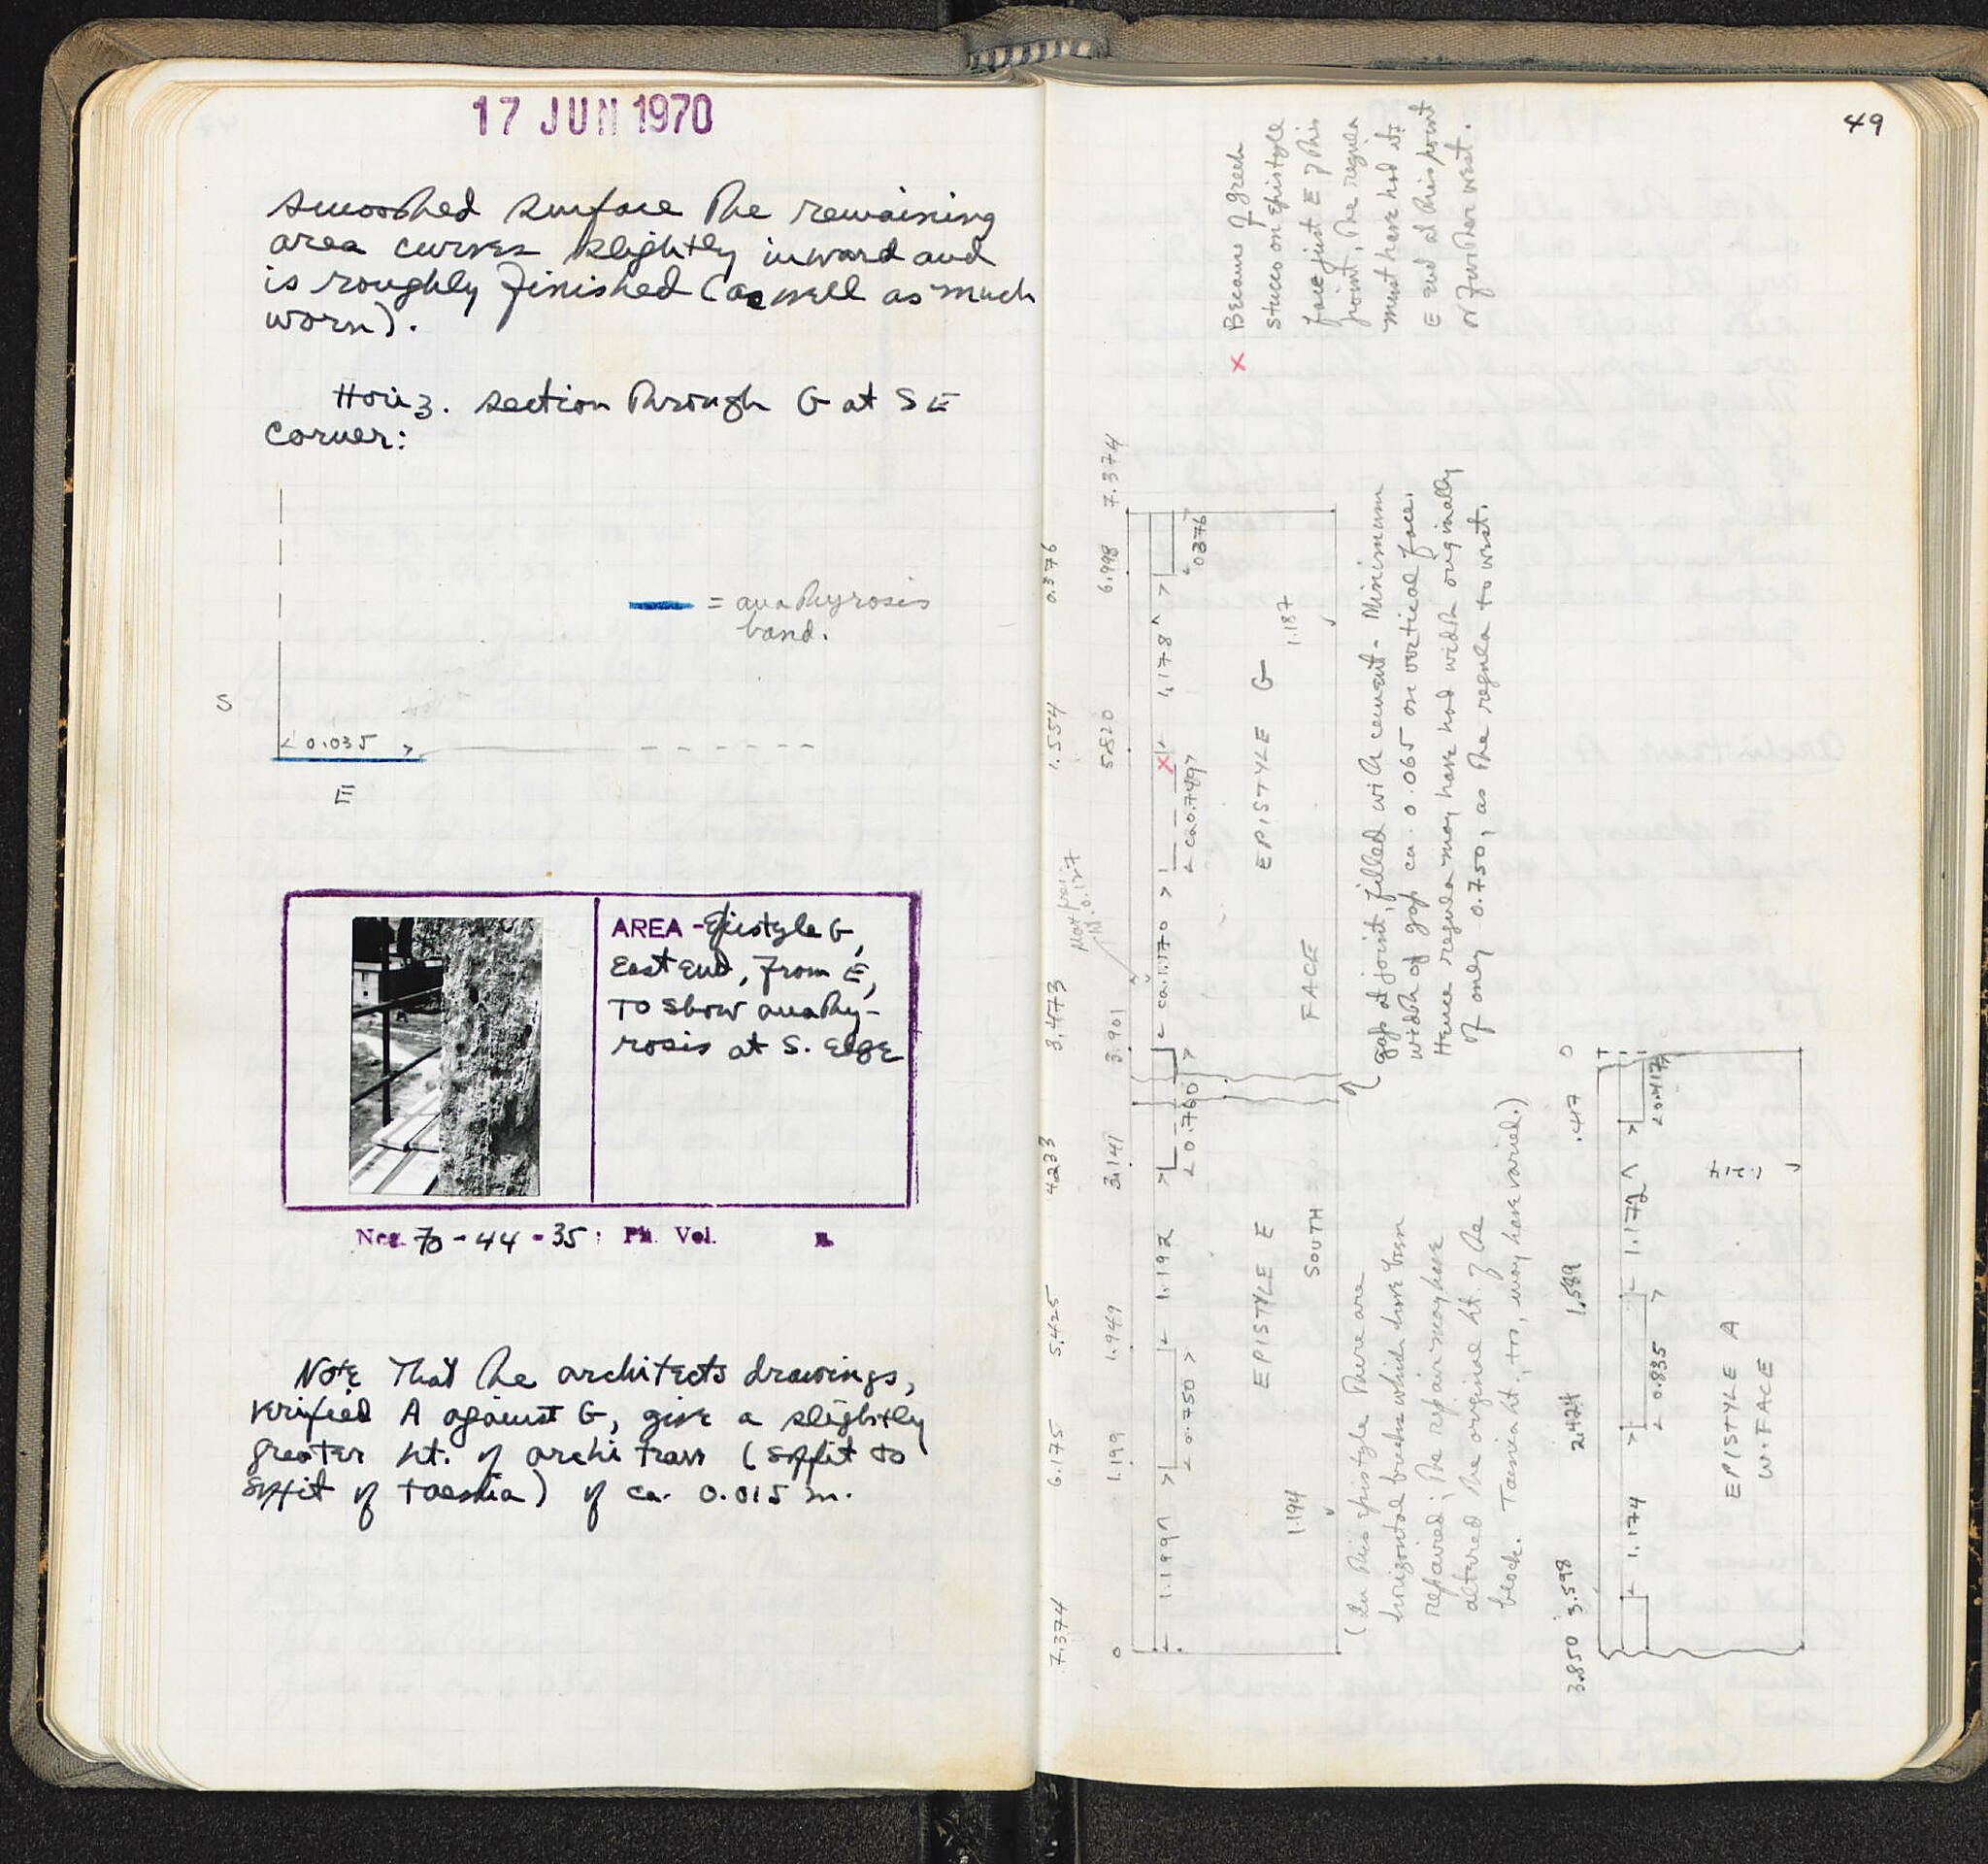 17 JUN 1970
smoothed surface the remaining
area curves slightly inward and
is roughly finished (as well as much
worn).
Horiz. section through G at SE
corner:
= anathyrosis
band.
S
< 0.035 >
E
AREA - Epistyle G,
East end, from E,
to show anathy-
rosis at S. edge
Neg. 70-44-35; Ph. Vol.
Note that the architects drawings,
verified A against G, give a slightly
greater ht. of architrave (soffit to
soffit of taenia) of ca. 0.015 m.
49
x Because of greek
stucco on epistyle
face just E of this
point, the regula
must have had its
E end at this point
or further west.
7.374 6.175 5.425 4.233 3.473 1.554 0.376
0 1.199 1.949 3.141 3.901 5.820 6.998 7.374
1.199 1.192 ca 1.170 x 1.178
< 0.750 > < 0.760 > < ca 0.749 > 0.376
EPISTYLE E EPISTYLE G
1.194 1.187
SOUTH FACE
gap at joint, filled with cement - Minimum
width of gap ca. 0.065 on vertical face.
Hence regula may have had width originally
of only 0.750, as the regula to west.
(In this epistyle there are
horizontal breaks which have been
repaired; the repair may have
altered the original ht. of the
block. Taenia ht., too, may have varied.)
3.850 3.598 2.424 1.589 .417 0
1.174 1.172
< 0.835 > < 0.417 >
EPISTYLE A
W. FACE